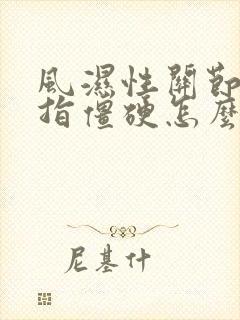 風濕性關節
指僵硬怎麼
尼基什